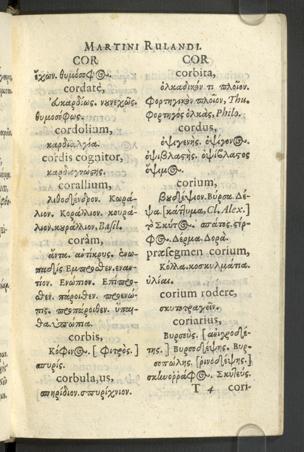 MARTINI RULANDI.
COR
ἔχων. θυμόσοφος.
cordatè,
εὐκαρδίως. νουνεχῶς.
θυμοσόφως.
cordolium,
καρδιαλγία.
cordis cognitor,
καρδιογνώστης.
corallium,
λιθόδενδρον. Κωράλιον. Κοράλλιον. κουράλιον. κωράλλιον, Basil.
coràm,
ἄντα. ἀντίκρυς. ἐνωπαδίς. Ἔμπροθεν. ἐναντίον. Ἐνώπιον.
corbis,
Κόφινος.
σπυρίς.
corbula, us,
σπυρίδιον. σπυρίχνιον.
COR
corbita,
ὁλκαδικόν τι πλοῖον.
Φορτηγικὸν πλοῖον, Thu.
Φορτηγὸς ὁλκὰς, Philo.
cordus,
ὀψιγενής. ὀψίγονος.
ὀψιβλαστής. ὀψίβλαστος
ὄψιμος.
corium,
Βύρσα. Δέψα. Cl. Alex.]
τὸ σκῦτος. Δέρμα. Δορά.
præsegmen corium,
Κόλλα. κοσκυλμάτια.
corium rodere,
σκυτοτραγεῖν.
coriarius,
Βυρσεύς.
Βυρσοδέψης. Βυρσοπώλης.
σκυτορράφος. Σκυλεύς.
T 4 cori-